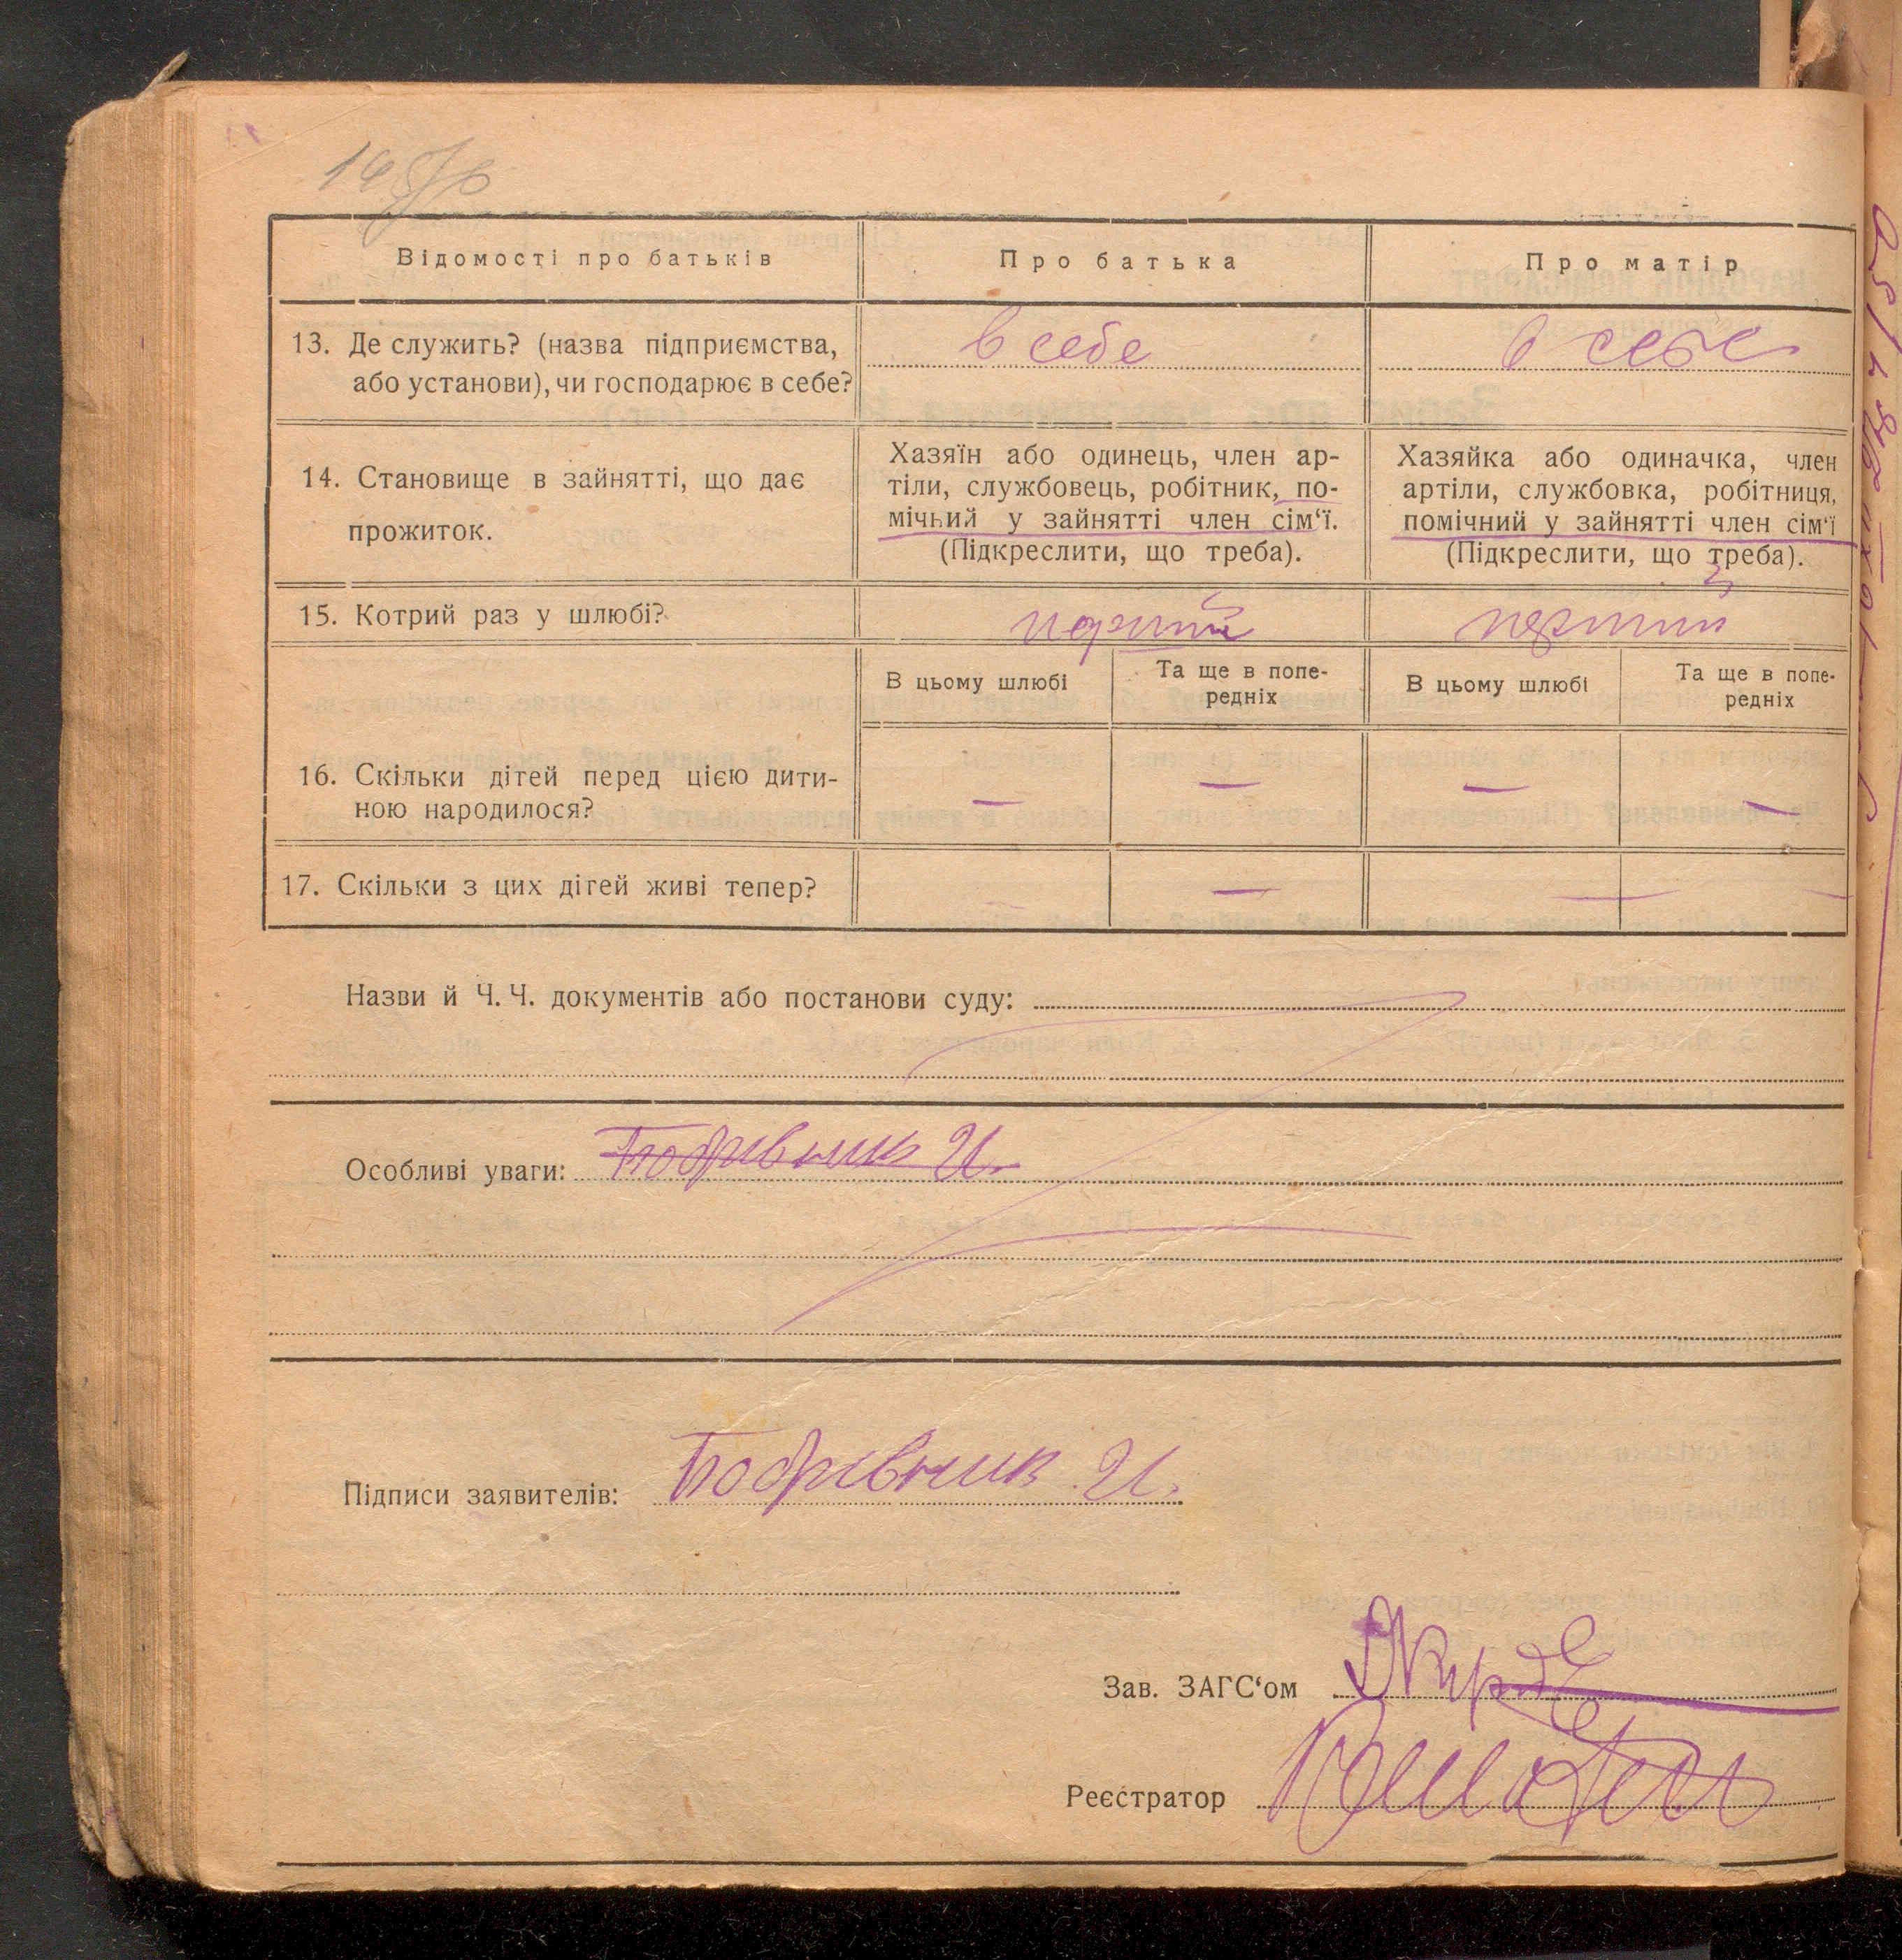 Відомості про батьків
Про батька
Про матір
13. Де служить? (назва підприємства,
або установи), чи господарює в себе?
в себе
в себе
14. Становище в зайнятті, що дає
прожиток.
Хазяїн або одинець, член ар-
тіли, службовець, робітник, по-
мічний у зайнятті член сім‘ї.
(Підкреслити, що треба).
Хазяйка або одиначка, член
артіли, службовка, робітниця,
помічний у зайнятті член сім‘ї
(Підкреслити, що треба).
15. Котрий раз у шлюбі?
перший
перший
В цьому шлюбі
Та ще в попе-
редніх
В цьому шлюбі
Та ще в попе-
редніх
16. Скільки дітей перед цією дити-
ною народилося?
— — — —
17. Скільки з цих дітей живі тепер?
— — —
Назви й Ч. Ч. документів або постанови суду:
Особливі уваги: Бобрівник И.
Підписи заявителів: Бобрівник И.
Зав. ЗАГС‘ом
Реєстратор